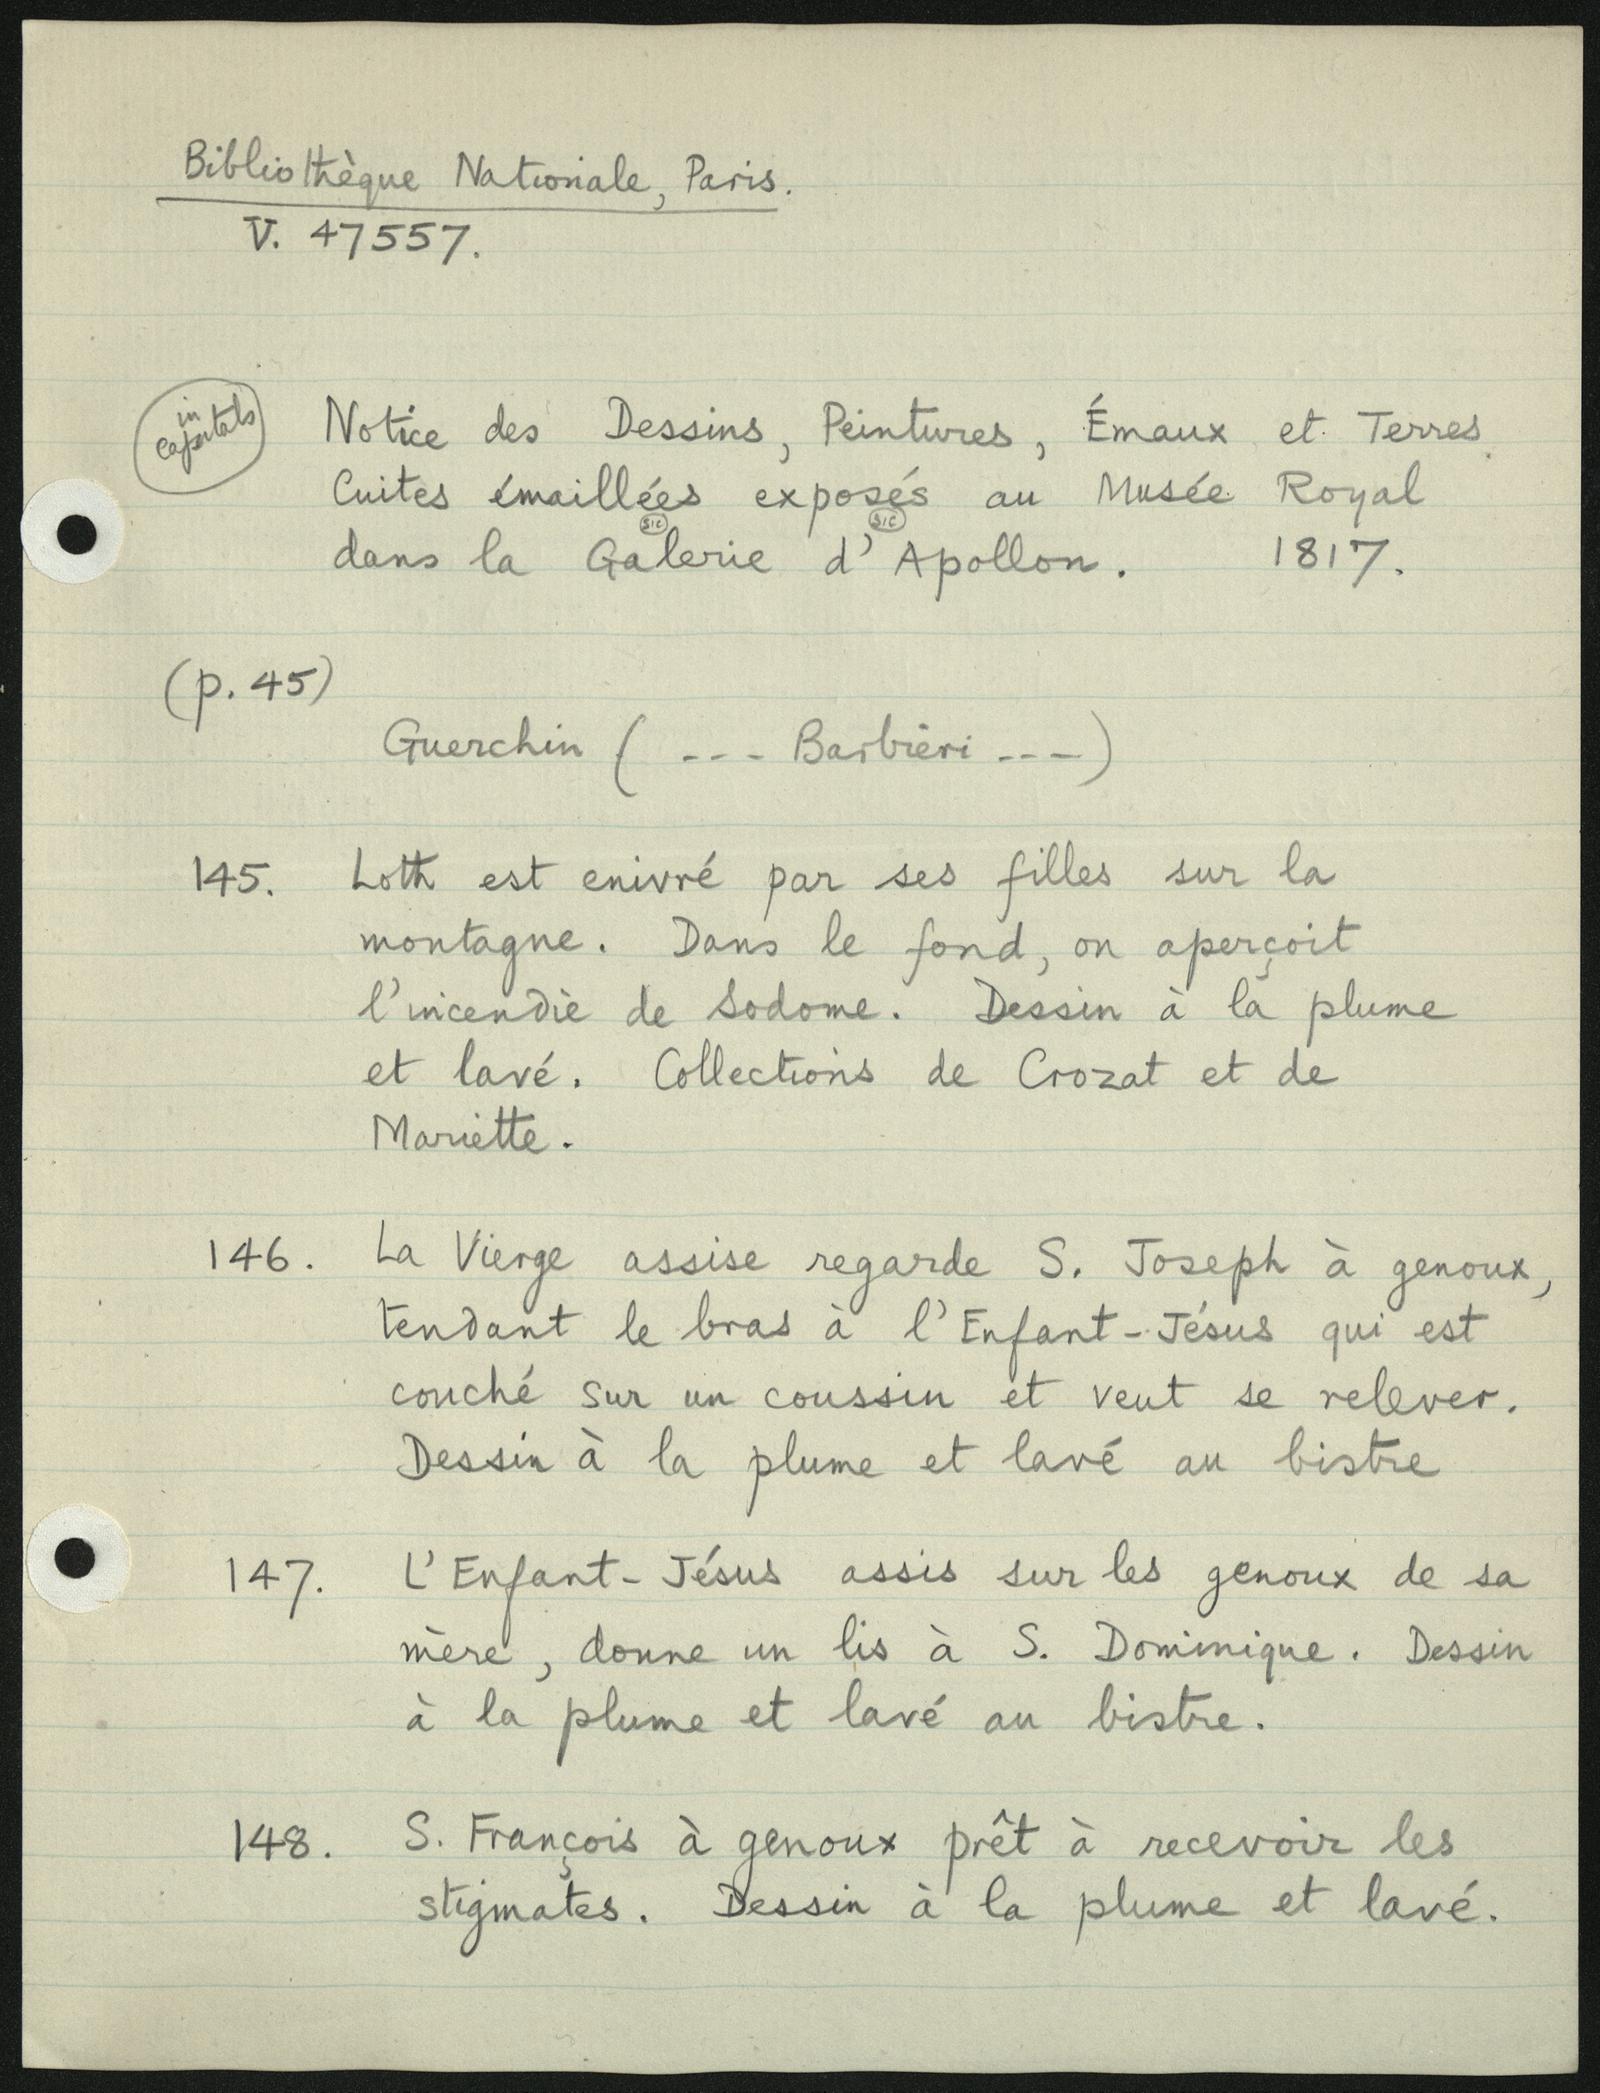 Bibliothèque Nationale, Paris.
V. 47557.
in
capitals
Notice des Dessins, Peintures, Émaux et Terres
Cuites émaillées exposés au Musée Royal
sic sic
dans la Galerie d'Apollon. 1817.
(p. 45)
Guerchin ( --- Barbiéri --- )
145. Loth est enivré par ses filles sur la
montagne. Dans le fond, on aperçoit
l'incendie de Sodome. Dessin à la plume
et lavé. Collections de Crozat et de
Mariette.
146. La Vierge assise regarde S. Joseph à genoux,
tendant le bras à l'Enfant-Jésus qui est
couché sur un coussin et veut se relever.
Dessin à la plume et lavé au bistre
147. L'Enfant-Jésus assis sur les genoux de sa
mère, donne un lis à S. Dominique. Dessin
à la plume et lavé au bistre.
148. S. François à genoux prêt à recevoir les
stigmates. Dessin à la plume et lavé.